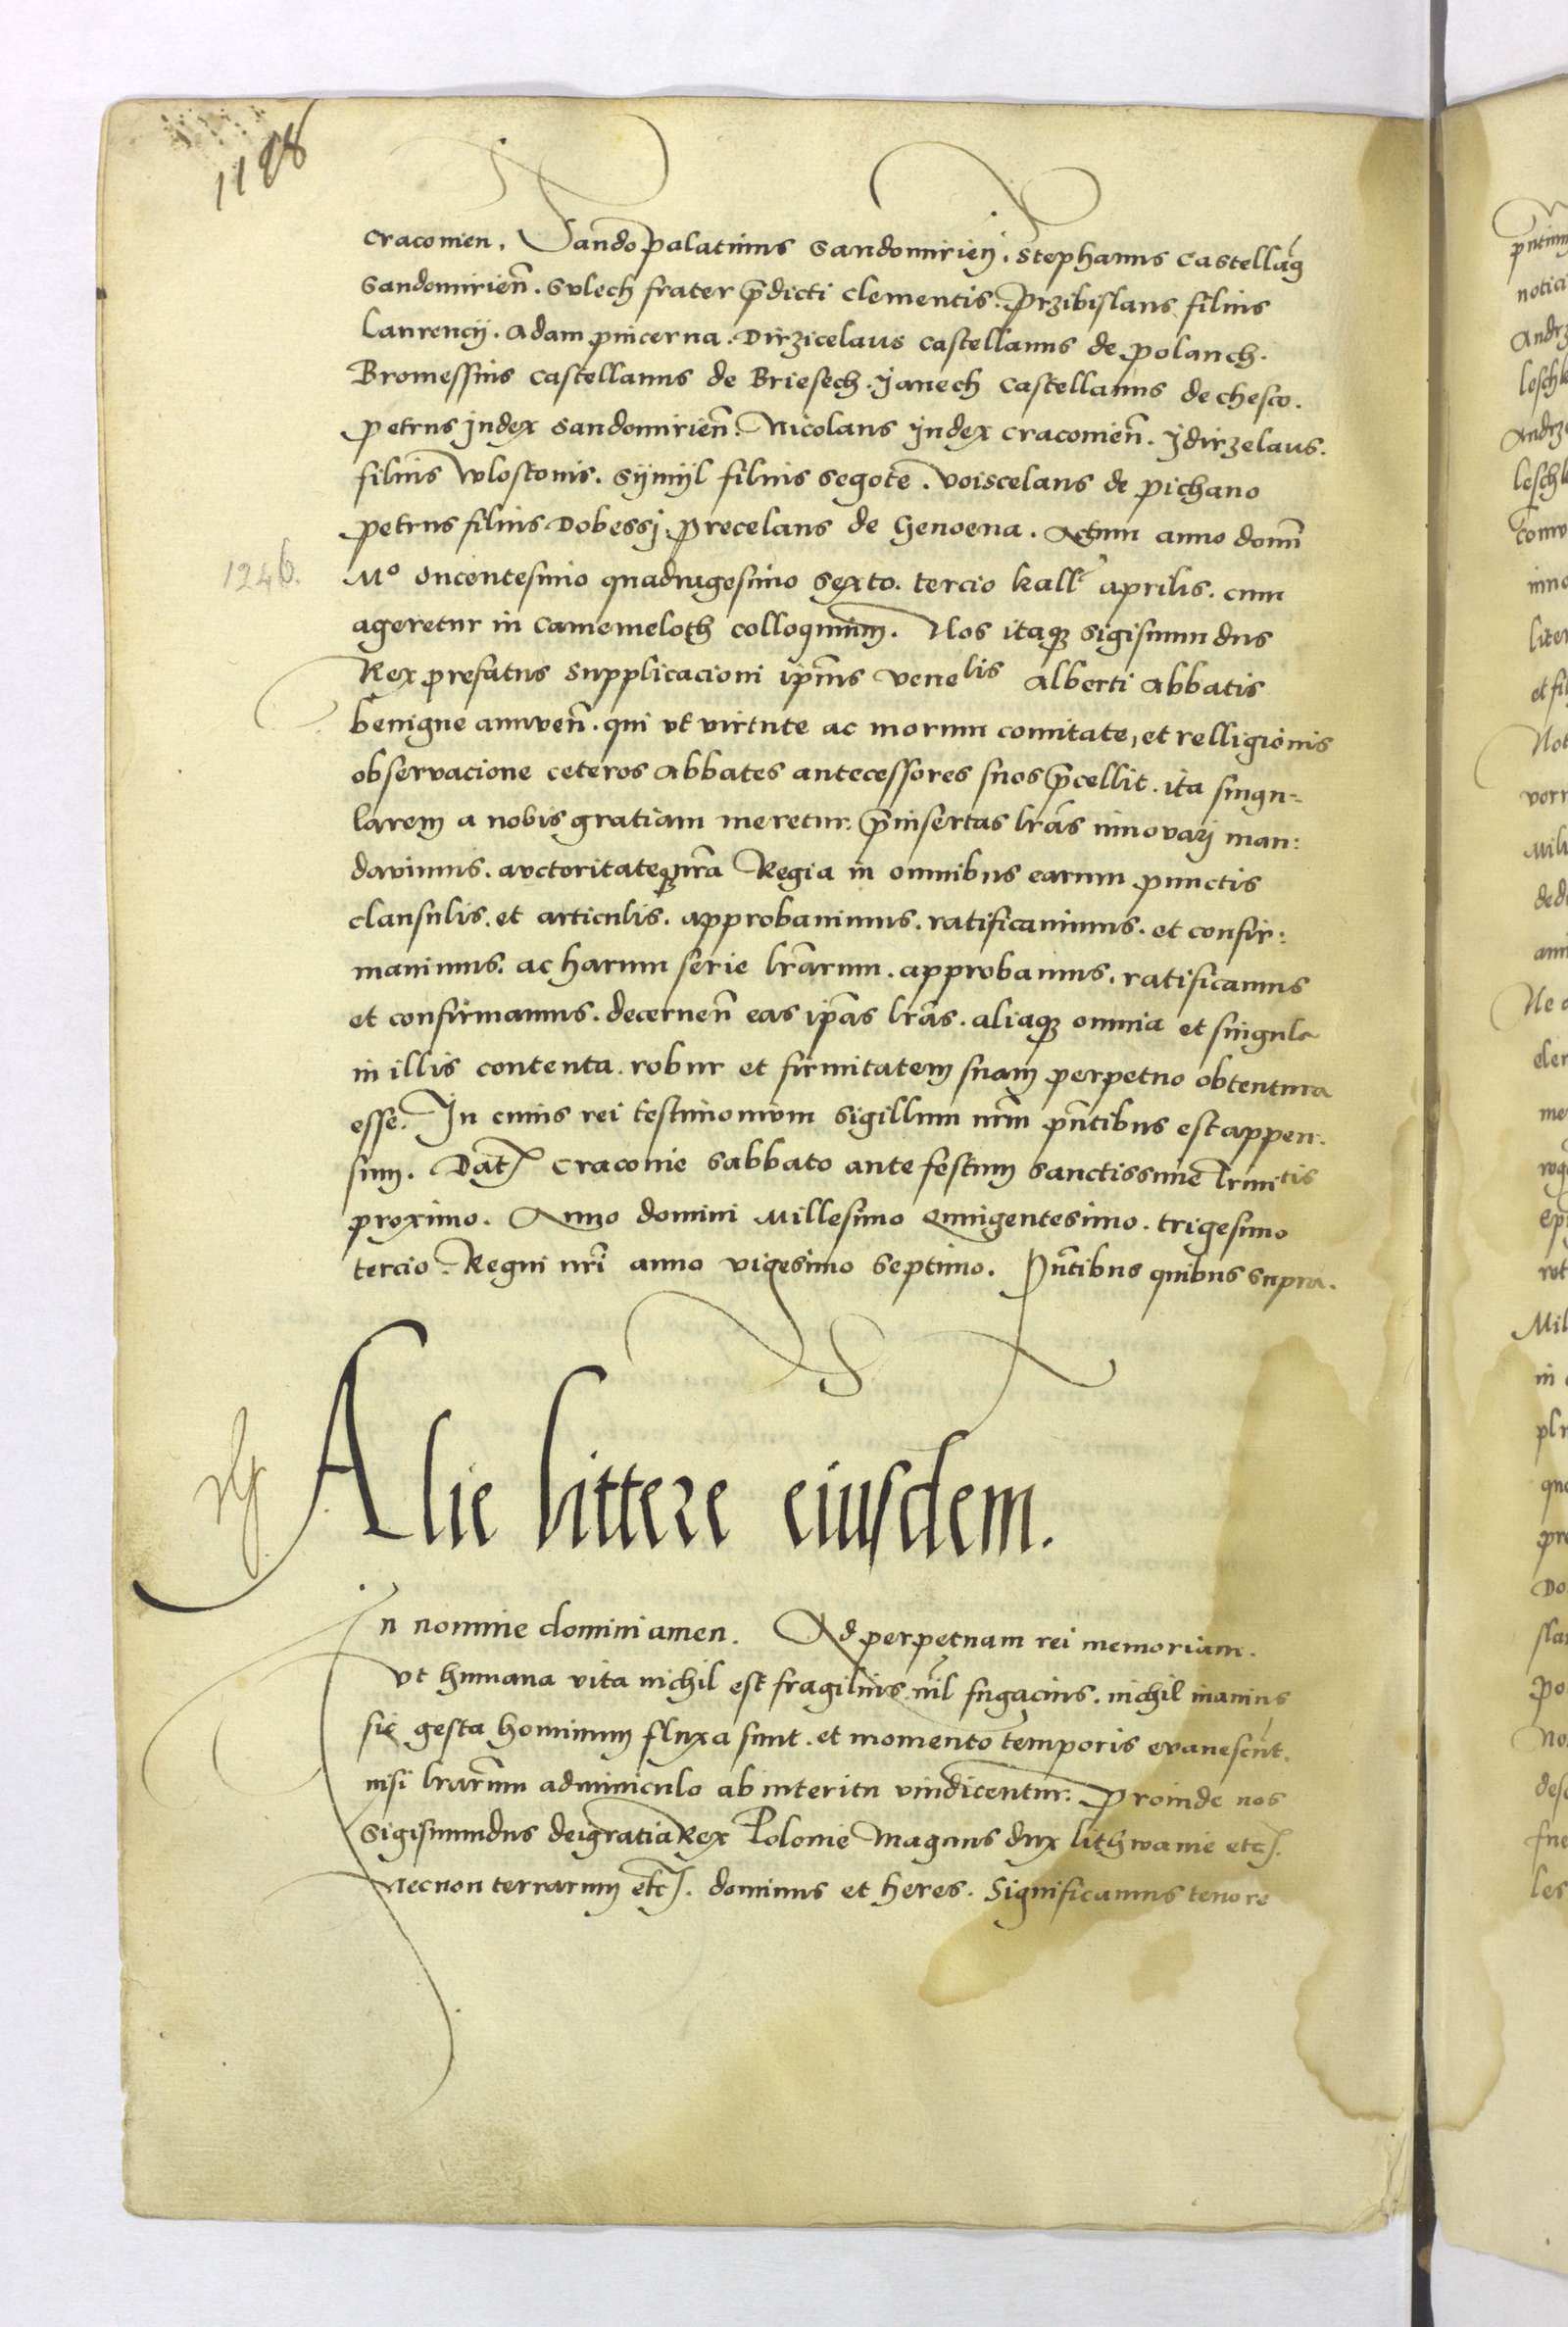 1188
Cracovien. Sando palatinus Sandomirien. Stephanus Castellan̄
Sandomirien̄. Sulech frater p̄dicti Clementis. Przibislaus filius
Laurencij. Adam pincerna. Dirzicelaus Castellanus de polanch.
Bromessius Castellanus de Briesech. Janech Castellanus de chesco.
Petrus Judex Sandomirien̄. Nicolaus Judex Cracovien̄. Jdirzelaus.
filius Wlostonis. Symyl filius Segote. Voiscelaus de pichano
Petrus filius Dobessj. Precelaus de Genoena. Actum anno domn̄
1246.
Mº ducentesimo quadragesimo sexto. tercio kall. aprilis. cum
ageretur in Camemeloth colloquium. Nos itaq3 Sigismundus
Rex prefatus supplicacioni ip̄ius venelis Alberti Abbatis
benigne annuen̄. qui ut virtute ac morum comitate, et relligionis
observacione ceteros Abbates antecessores suos p̄cellit. ita singu-
larem a nobis gratiam meretur. p̄insertas lr̄as innovarj man:
davimus. auctoritateq3 nr̄a Regia in omnibus earum punctis
clausulis. et articulis. approbavimus. ratificavimus. et confir:
mavimus. ac harum serie lr̄arum. approbamus. ratificamus
et confirmamus. decernen̄ eas ip̄as lr̄as. aliaq3 omnia et singula
in illis contenta. robur et firmitatem suam perpetuo obtentura
esse. In cuius rei testimonium Sigillum nr̄m pn̄tibus est appen-
sum. Dat̄ Cracovie Sabbato ante festum Sanctissime Trinitis
proximo. Anno domini Millesimo Quingentesimo. trigesimo
tercio. Regni nr̄i anno vigesimo septimo. Pn̄tibus quibus supra.
Alie littere eiusdem.
In nomine domini amen. Ad perpetuam rei memoriam.
Ut humana vita nichil est fragilius. nīl fugacius. nichil inanius
sic gesta hominum fluxa sunt. et momento temporis evanescūt.
nisi lr̄arum adminiculo ab interitu vindicentur. Proinde nos
Sigismundus dei gratia Rex Polonie Magnus dux lithwanie etc.
Necnon terrarum etc. dominus et heres. Significamus tenore